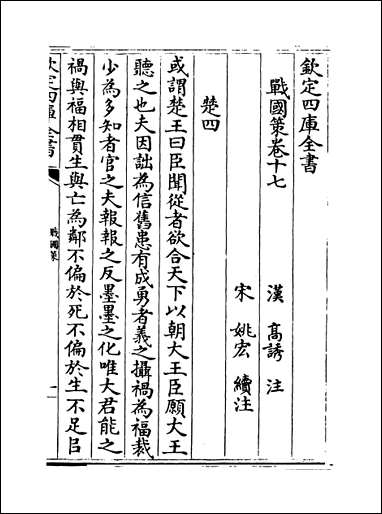 欽定四庫全書
戰國策卷十七
漢　高誘　注
宋　姚宏　續注
楚四
或謂楚王曰臣聞從者欲合天下以朝大王臣願大王
聽之也夫因詘為信舊患有成勇者義之攝禍為福裁
少為多知者官之夫報報之反墨墨之化唯大君能之
禍與福相貫生與亡為鄰不偏於死不偏於生不足㠯
欽定四庫全書
戰國策
一